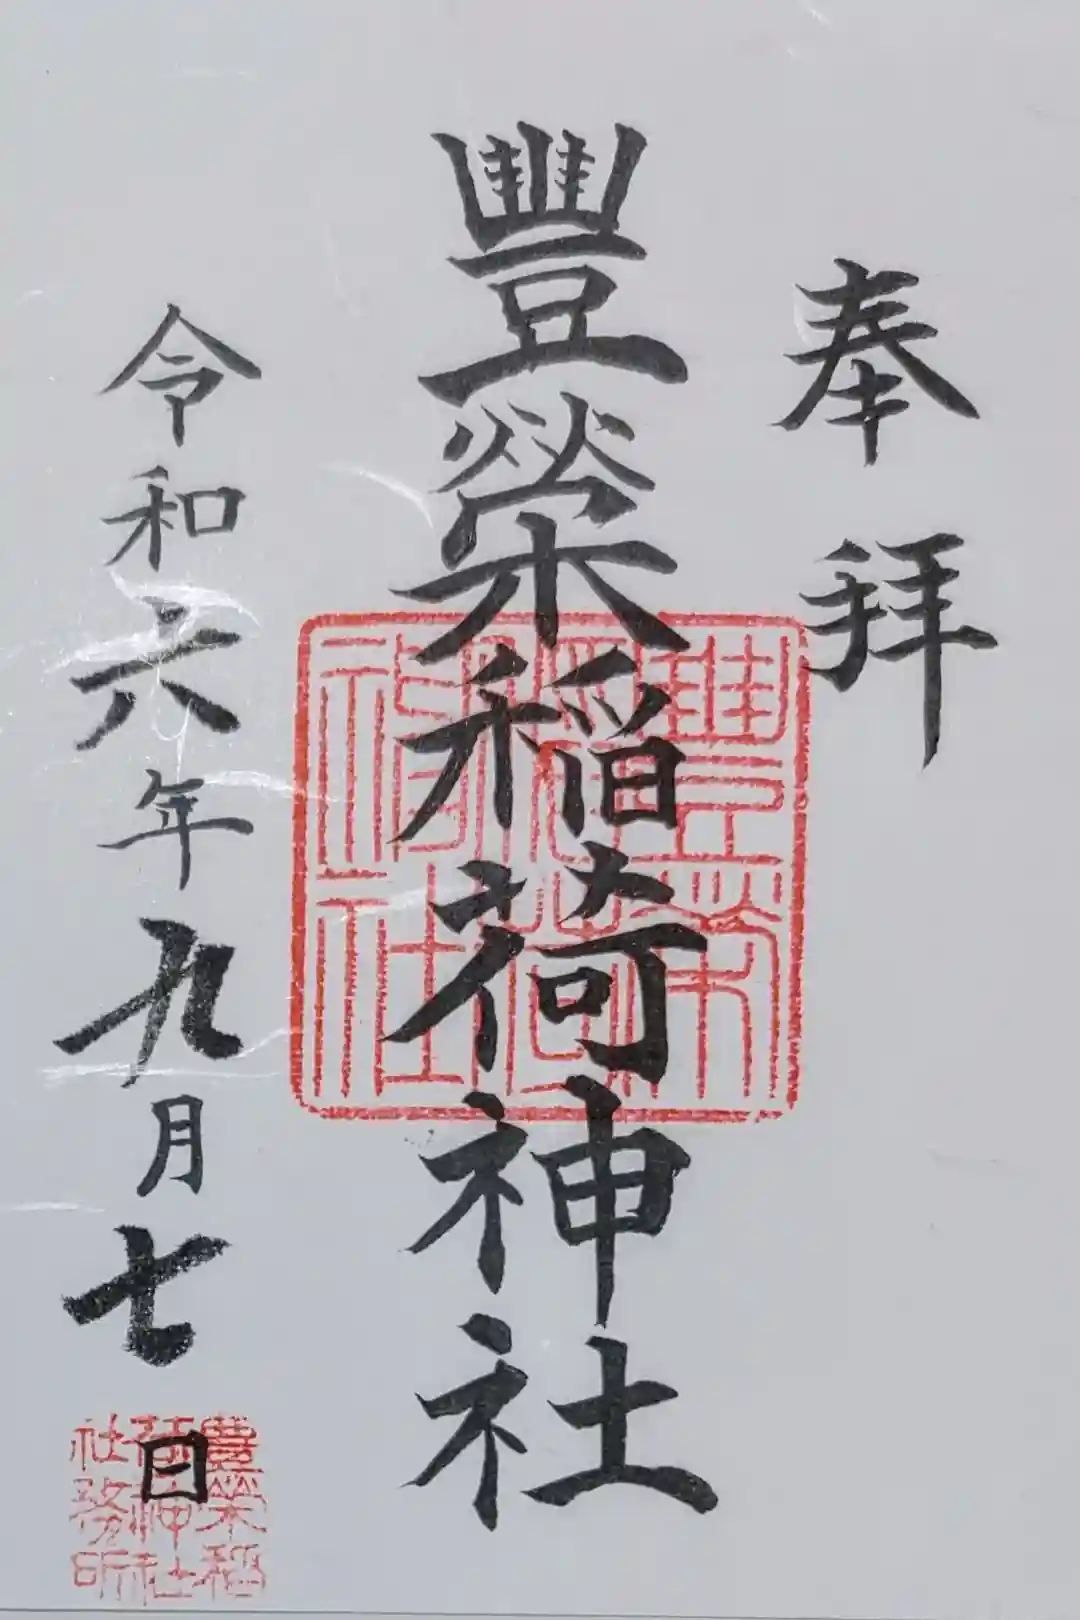 奉拝
豐榮稲荷神社
豊栄稲荷神社
令和六年九月七日
豊栄稲荷神社社務所